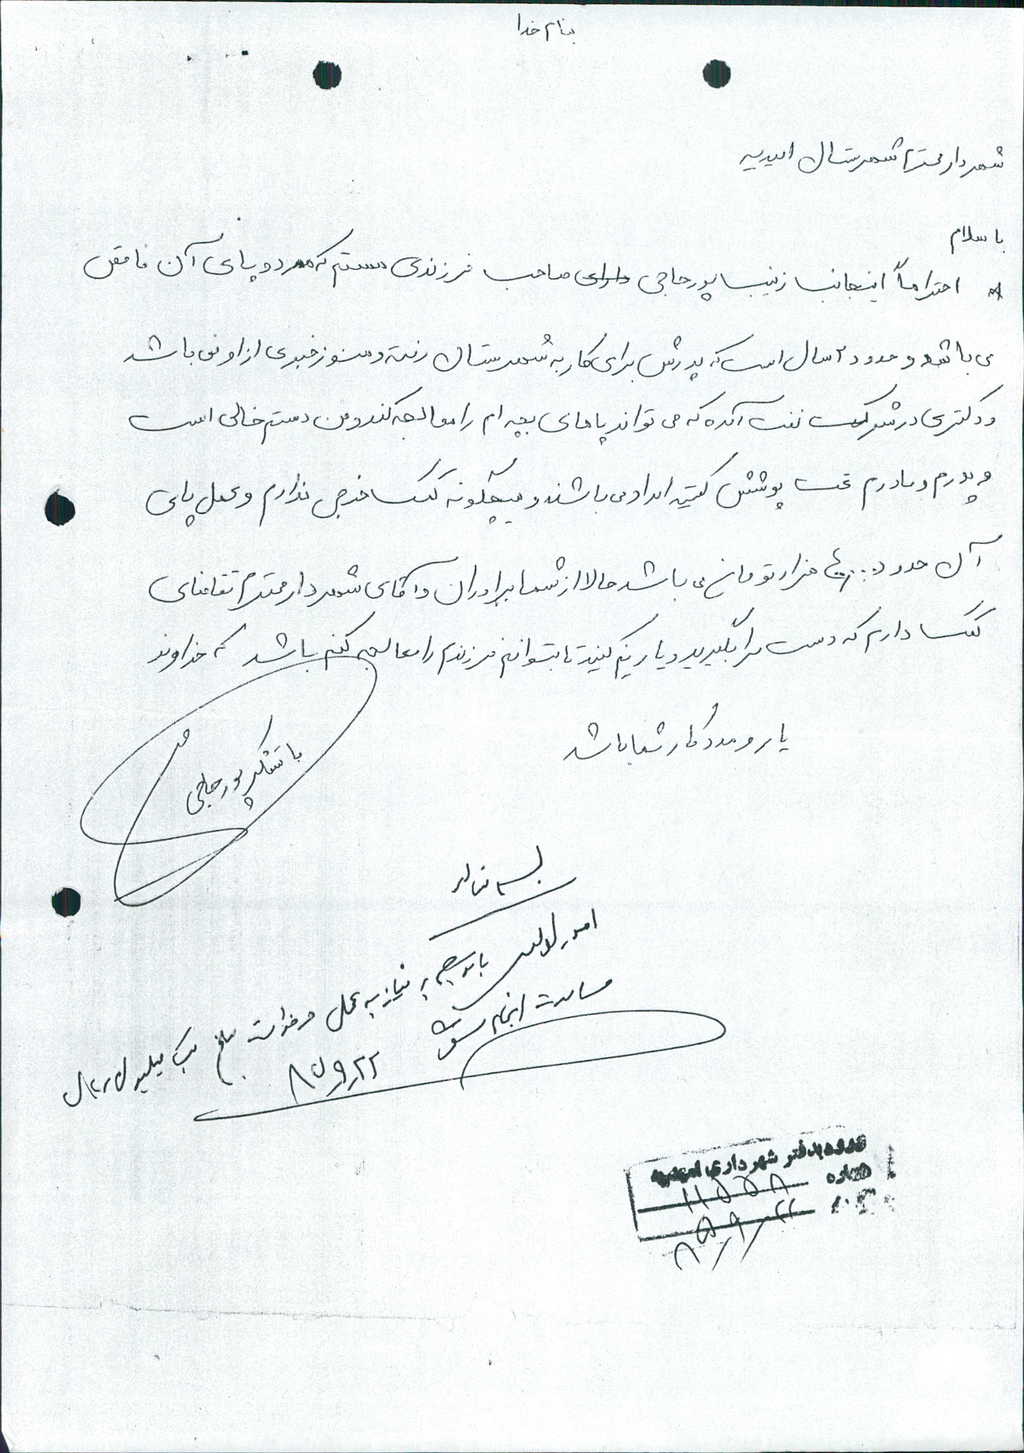 بنام خدا
شهردار محترم شهرستان امیدیه
با سلام
احتراماً اینجانب زینب پورحاجی دارای صاحب فرزندی هستم که هر دو پای آن ناقص
می باشد و حدود ۲ سال است که پدرش برای کار به شهرستان رفته و هنوز خبری از او نمی باشد
و دکتری در شرکت نفت آمده که می تواند پاهای بچه ام را معالجه کند و من دستم خالی است
و پدرم و مادرم تحت پوشش کمیته امداد می باشند و هیچگونه کمک خرجی ندارم و عمل پای
آن حدود هزار تومانی می باشد حالا از شما برادران و آقای شهردار محترم تقاضای
کمک دارم که دست مرا بگیرید و یاریم کنید تا بتوانم فرزندم را معالجه کنم باشد که خداوند
یار و مددکار شما باشد
با تشکر پورحاجی
بسمه تعالی
امور با توجه به نیاز به عمل مبلغ یک میلیون ریال
مساعدت انجام شود
۸۵٫۹٫۲۲
ورود به دفتر شهرداری امیدیه
شماره ۱۱۵۵۸
۸۵/۹/۲۲